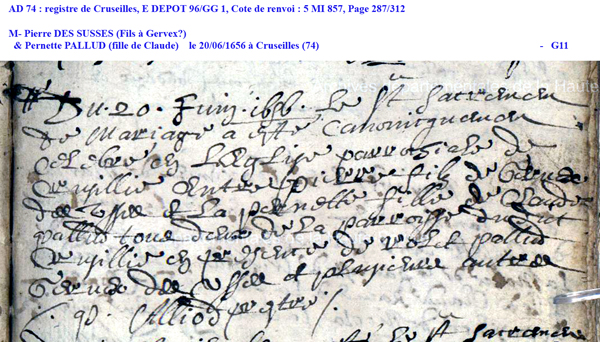 AD 74 : registre de Cruseilles, E DEPOT 96/GG 1, Cote de renvoi : 5 MI 857, Page 287/312
M- Pierre DES SUSSES (Fils à Gervex?)
& Pernette PALLUD (fille de Claude) le 20/06/1656 à Cruseilles (74)
- G11
Du 20. Juin. 1656. Le St Sacrement
de Mariage a esté Canonicquement
Celebré en L'Eglise parrochiale de
Entre pierre fils de
des et La pernette fille de Claude
pallud tous deux de La parroisse dudict
en presence de pallud
des et plusieurs autres